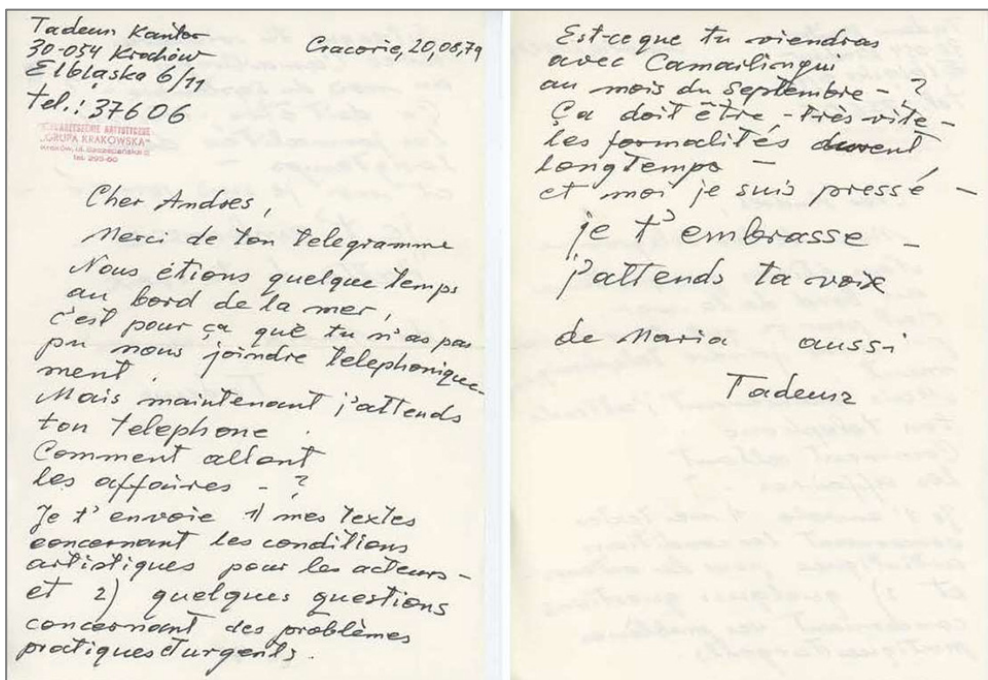 Tadeusz Kantor
30-054 Kraków
Elbląska 6/11
tel.: 37606
Cracovie, 20,08,79
STOWARZYSZENIE ARTYSTYCZNE
„GRUPA KRAKOWSKA"
Kraków, ul. Szczepańska 2
tel. 295-60
Cher Andres,
Merci de ton telegramme
Nous étions quelque temps
au bord de la mer,
c'est pour ça que tu n'as pas
pu nous joindre telephonique-
ment.
Mais maintenant j'attends
ton telephone.
Comment allont
les affaires - ?
Je t'envoie 1) mes textes
concernant les conditions
artistiques pour les acteurs -
et 2) quelques questions
concernant des problèmes
pratiques d'urgents.
Est-ce que tu viendras
avec Camarlingui
au mois du Septembre - ?
Ça doit être - très vite -
les formalités durent
longtemps -
et moi je suis pressé -
je t'embrasse -
j'attends ta voix
de Maria aussi
Tadeusz